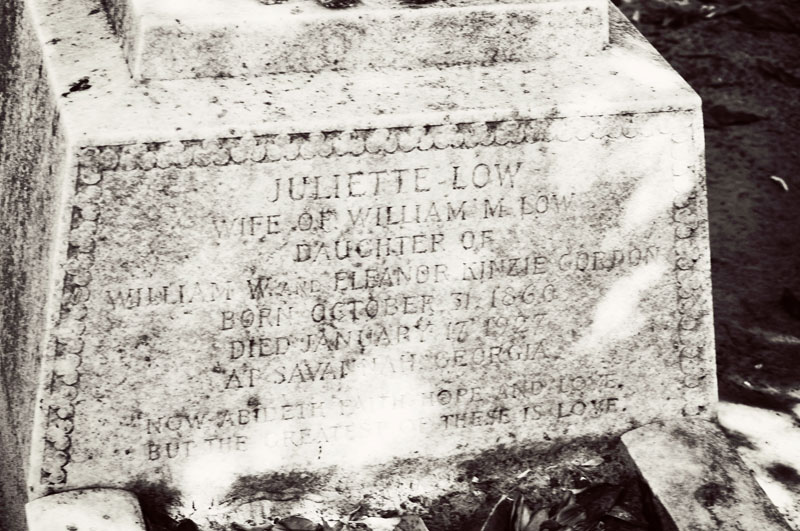 JULIETTE LOW
WIFE OF WILLIAM M. LOW
DAUGHTER OF
WILLIAM W. AND ELEANOR KINZIE GORDON
BORN OCTOBER 31, 1860
DIED JANUARY 17 1927
AT SAVANNAH GEORGIA
"NOW ABIDETH FAITH, HOPE AND LOVE,
BUT THE GREATEST OF THESE IS LOVE."